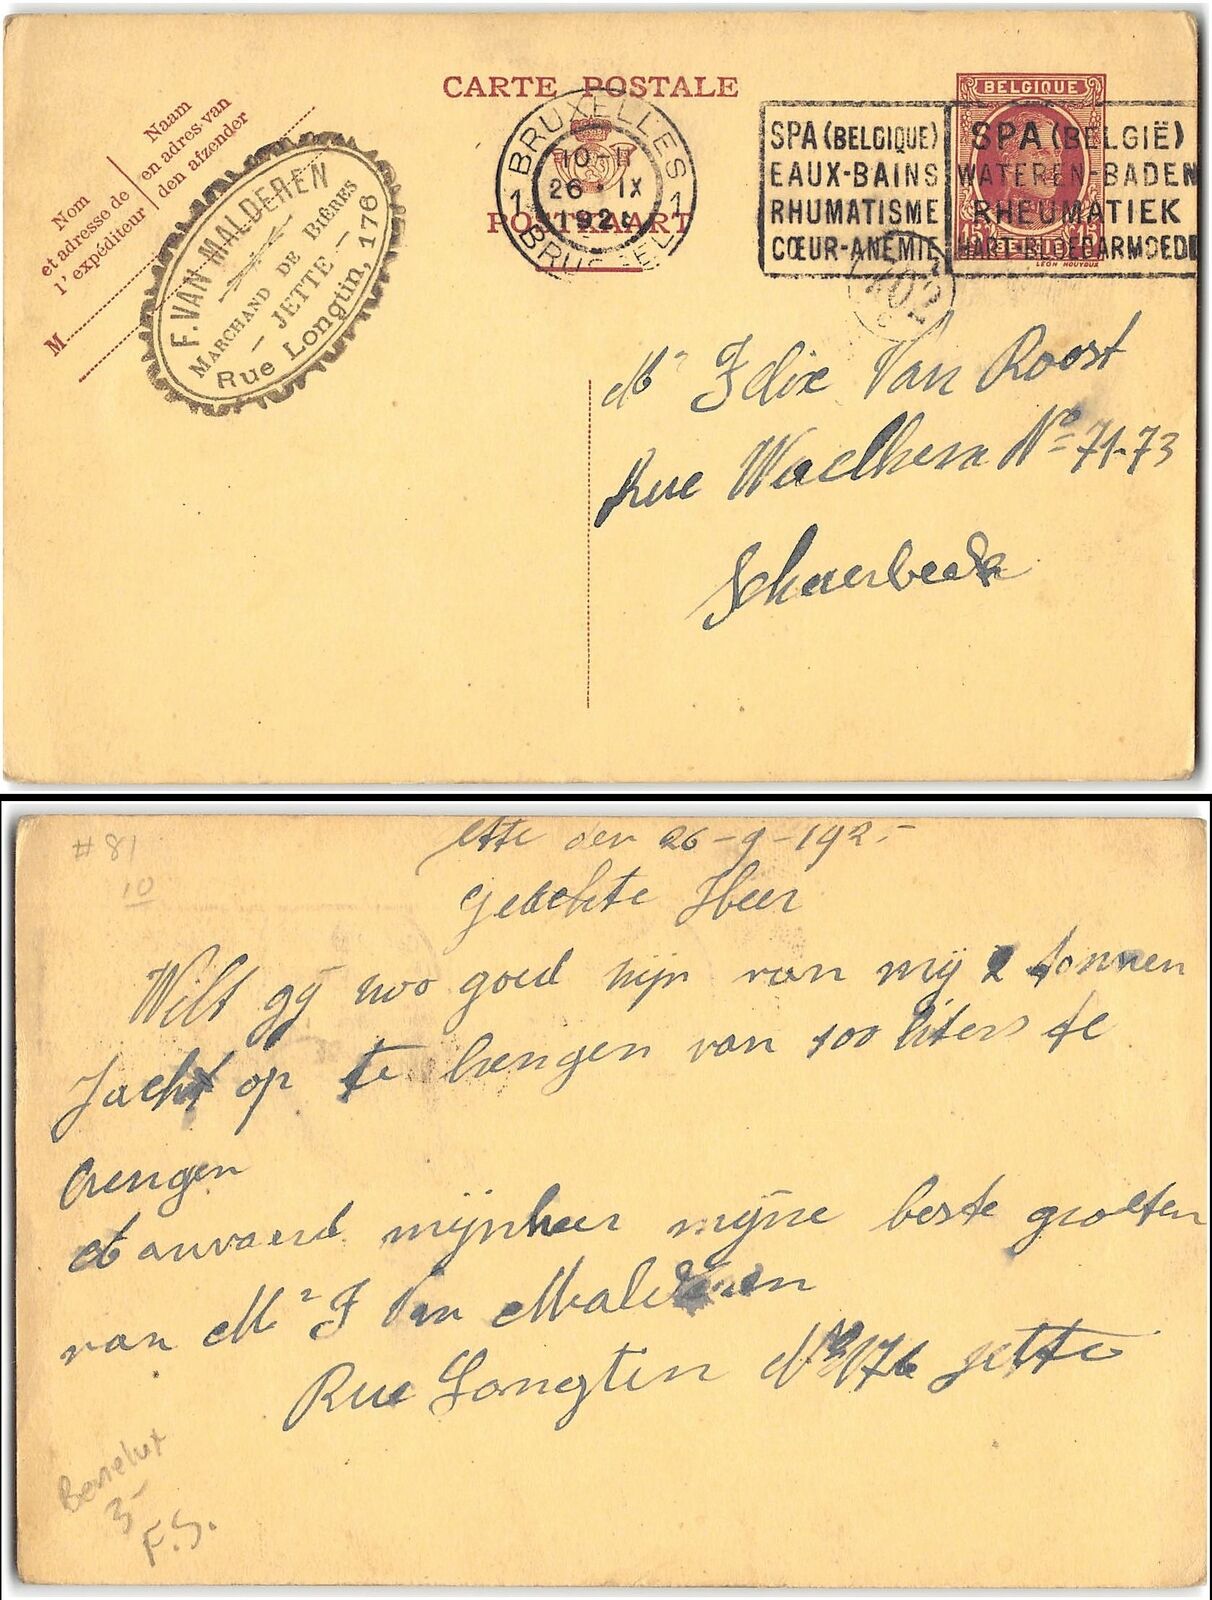 CARTE POSTALE
POSTKAART
Nom
et adresse de
l'expéditeur
Naam
en adres van
den afzender
M
F. VAN MALDEREN
MARCHAND DE BIÈRES
— JETTE —
Rue Longtin, 176
1 BRUXELLES 1
10-11
26 · IX
192
BRUSSEL
SPA (BELGIQUE)
EAUX-BAINS
RHUMATISME
CŒUR-ANÉMIE
SPA (BELGIË)
WATEREN-BADEN
RHEUMATIEK
HART-BLOEDARMOEDE
BELGIQUE
15c 15c
BELGIË
LEON HOUYOUX
Mr Felix Van Roost
Rue Waelhem No 71-73
Schaerbeek
#81
10
Jette den 26-9-192
geachte Heer
Wilt gij zoo goed zijn van mij 2 tonnen
Jacht op te brengen van 100 liters te
brengen
aanvaard mijnheer mijne beste groeten
van Mr F Van Malderen
Rue Longtin No 176 Jette
Benelux
3-
F.S.